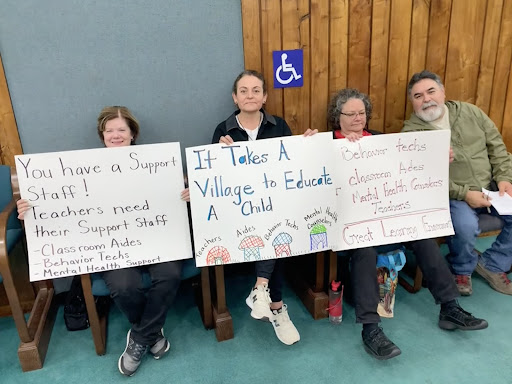 You have a Support
Staff!
Teachers need
their Support Staff
- Classroom Aides
- Behavior Techs
- Mental Health Support
It Takes A
Village to Educate
A Child
Teachers
Aides
Behavior Techs
Mental Health
Counselors
Behavior techs
Classroom Aides
Mental Health Counselors
Teachers
Great Learning Environment